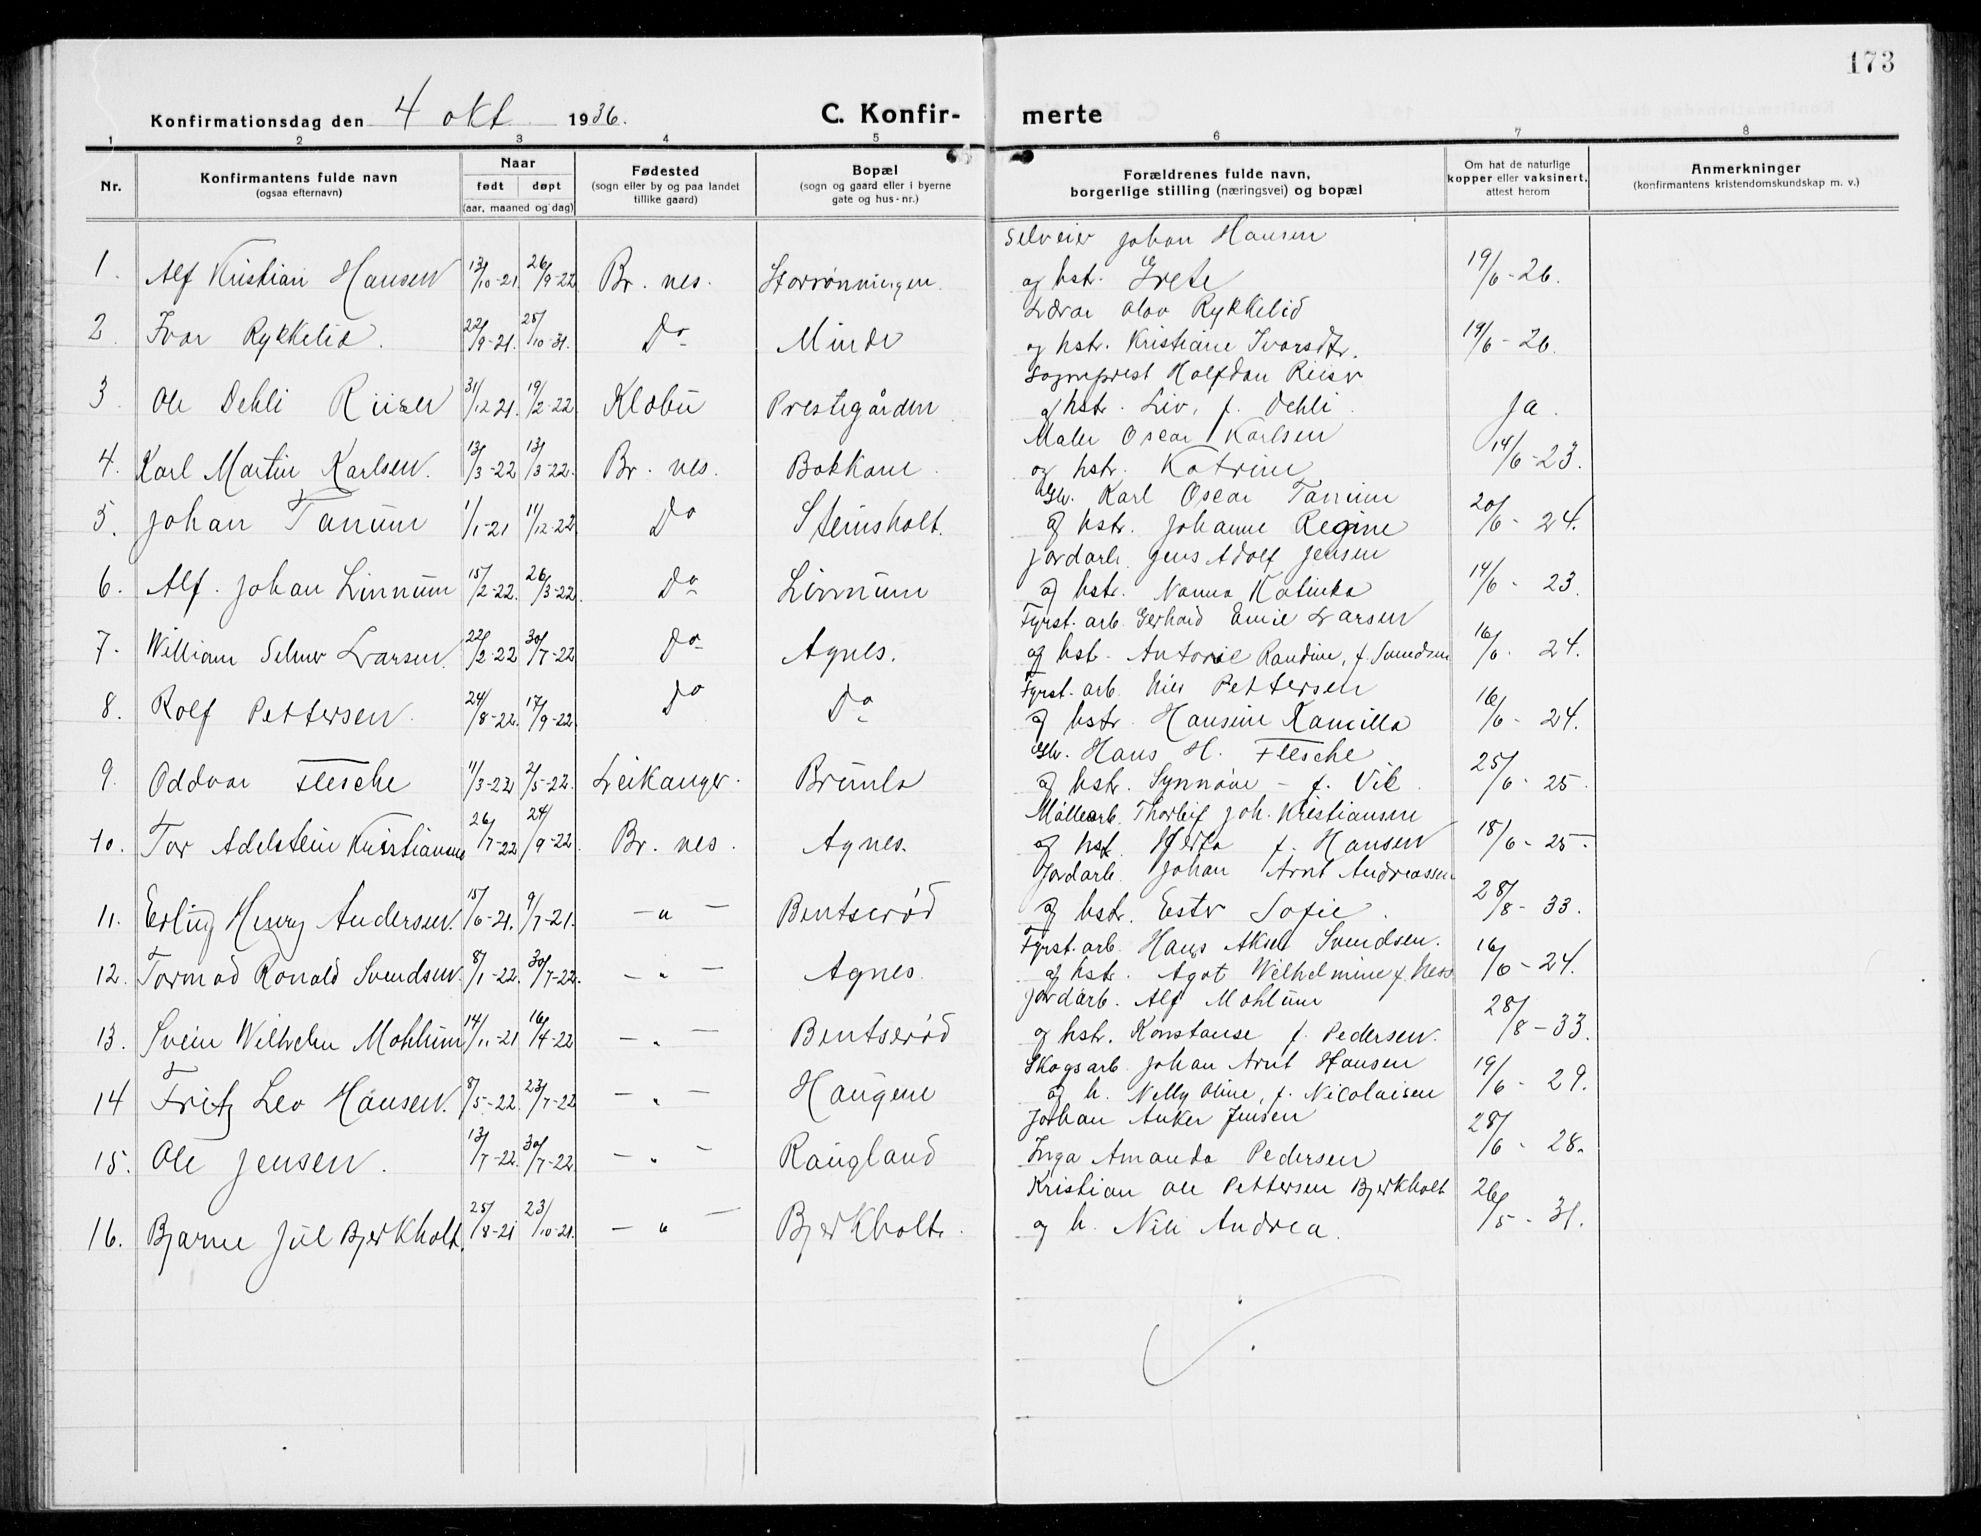 173
Konfirmationsdag den 4 okt 1936. C. Konfir- merte
1 2 3 4 5 6 7 8
Nr. Konfirmantens fulde navn (ogsaa efternavn) Naar født døpt (aar, maaned og dag) Fødested (sogn eller by og paa landet tillike gaard) Bopæl (sogn og gaard eller i byerne gate og hus-nr.) Forældrenes fulde navn, borgerlige stilling (næringsvei) og bopæl Om hat de naturlige kopper eller vaksinert, attest herom Anmerkninger (konfirmantens kristendomskundskap m. v.)
Selveier Johan Hansen
1. Alf Kristian Hansen 13/10-21. 26/9-22 Br. nes. Storrønningen. og hstr. Grete 19/6-26.
Lærar Olav Rykkelid
2. Ivar Rykkelid. 22/9-21. 25/10-31. Do Minde og hstr. Kristiane Ivarsdtr. 19/6-26.
Sogneprest Halfdan Riiser
3. Ole Dehli Riiser 31/12 21. 19/2-22 Klæbu Prestegården og hstr. Liv, f. Dehli. Ja.
Maler Oscar Karlsen
4. Karl Martin Karlsen. 13/3-22 13/3-22. Br. nes. Bakkane. og hstr. Katrine 14/6-23.
Gbr. Karl Oscar Tanum
5. Johan Tanum 1/1-21 11/12-22. Do Steinsholt. og hstr. Johanne Regine 20/6-24.
Jordarb. Jens Adolf Jensen
6. Alf. Johan Linnum 15/2-22. 26/3-22. Do Linnum og hstr. Nanna Katinka 14/6-23.
Fyrst. arb. Gerhard Emil Larsen
7. William Selmer Larsen. 22/2-22 30/7-22 Do Agnes. og hst. Antonie Randine, f. Svendsen 16/6-24.
Fyrst. arb. Nils Pettersen
8. Rolf Pettersen. 24/8-22. 17/9-22. Do Do og hstr. Hansine Kamilla 16/6-24.
Gbr. Hans H. Flesche
9. Oddvar Flesche 11/3-22 2/5-22. Leikanger. Brunla og hstr. Synnøve - f. Vik. 25/6-25.
Møllearb. Thorleif Joh. Kristiansen
10. Tor Adelstein Kristiansen 26/7-22 24/9-22. Br. nes. Agnes. og hst. Herta f. Hansen 18/6-25.
Jordarb. Johan Arnt Andreassen
11. Erling Henry Andersen. 15/6-21. 9/7-21. -"- Bentserød og hstr. Ester Sofie. 28/8-33.
Fyrst. arb. Hans Aksel Svendsen.
12. Tormod Ronald Svendsen. 8/1-22. 30/7-22. -"- Agnes. og hstr. Agot Wilhelmine f. Ness 16/6-24.
Jordarb. Alf Mohlum
13. Svein Wilhelm Mohlum 14/11-21 16/4-22 -"- Bentserød og hstr. Konstanse f. Pedersen. 28/8-33.
Skogsarb. Johan Arnt Hansen
14 Fritz Leo Hansen. 8/5-22. 23/7-22 -"- Haugene og h. Nelly Oline, f. Nicolaisen 19/6-29.
Johan Anker Jensen
15. Ole Jensen. 13/7-22. 30/7-22. -"- Raugland Inga Amanda Pedersen 28/6-28.
Kristian Ole Pettersen Bjerkholt
16. Bjarne Jul Bjerkholt. 25/8-21 23/10-21. -"- Bjerkholt. og h. Nili Andrea. 26/5-31.